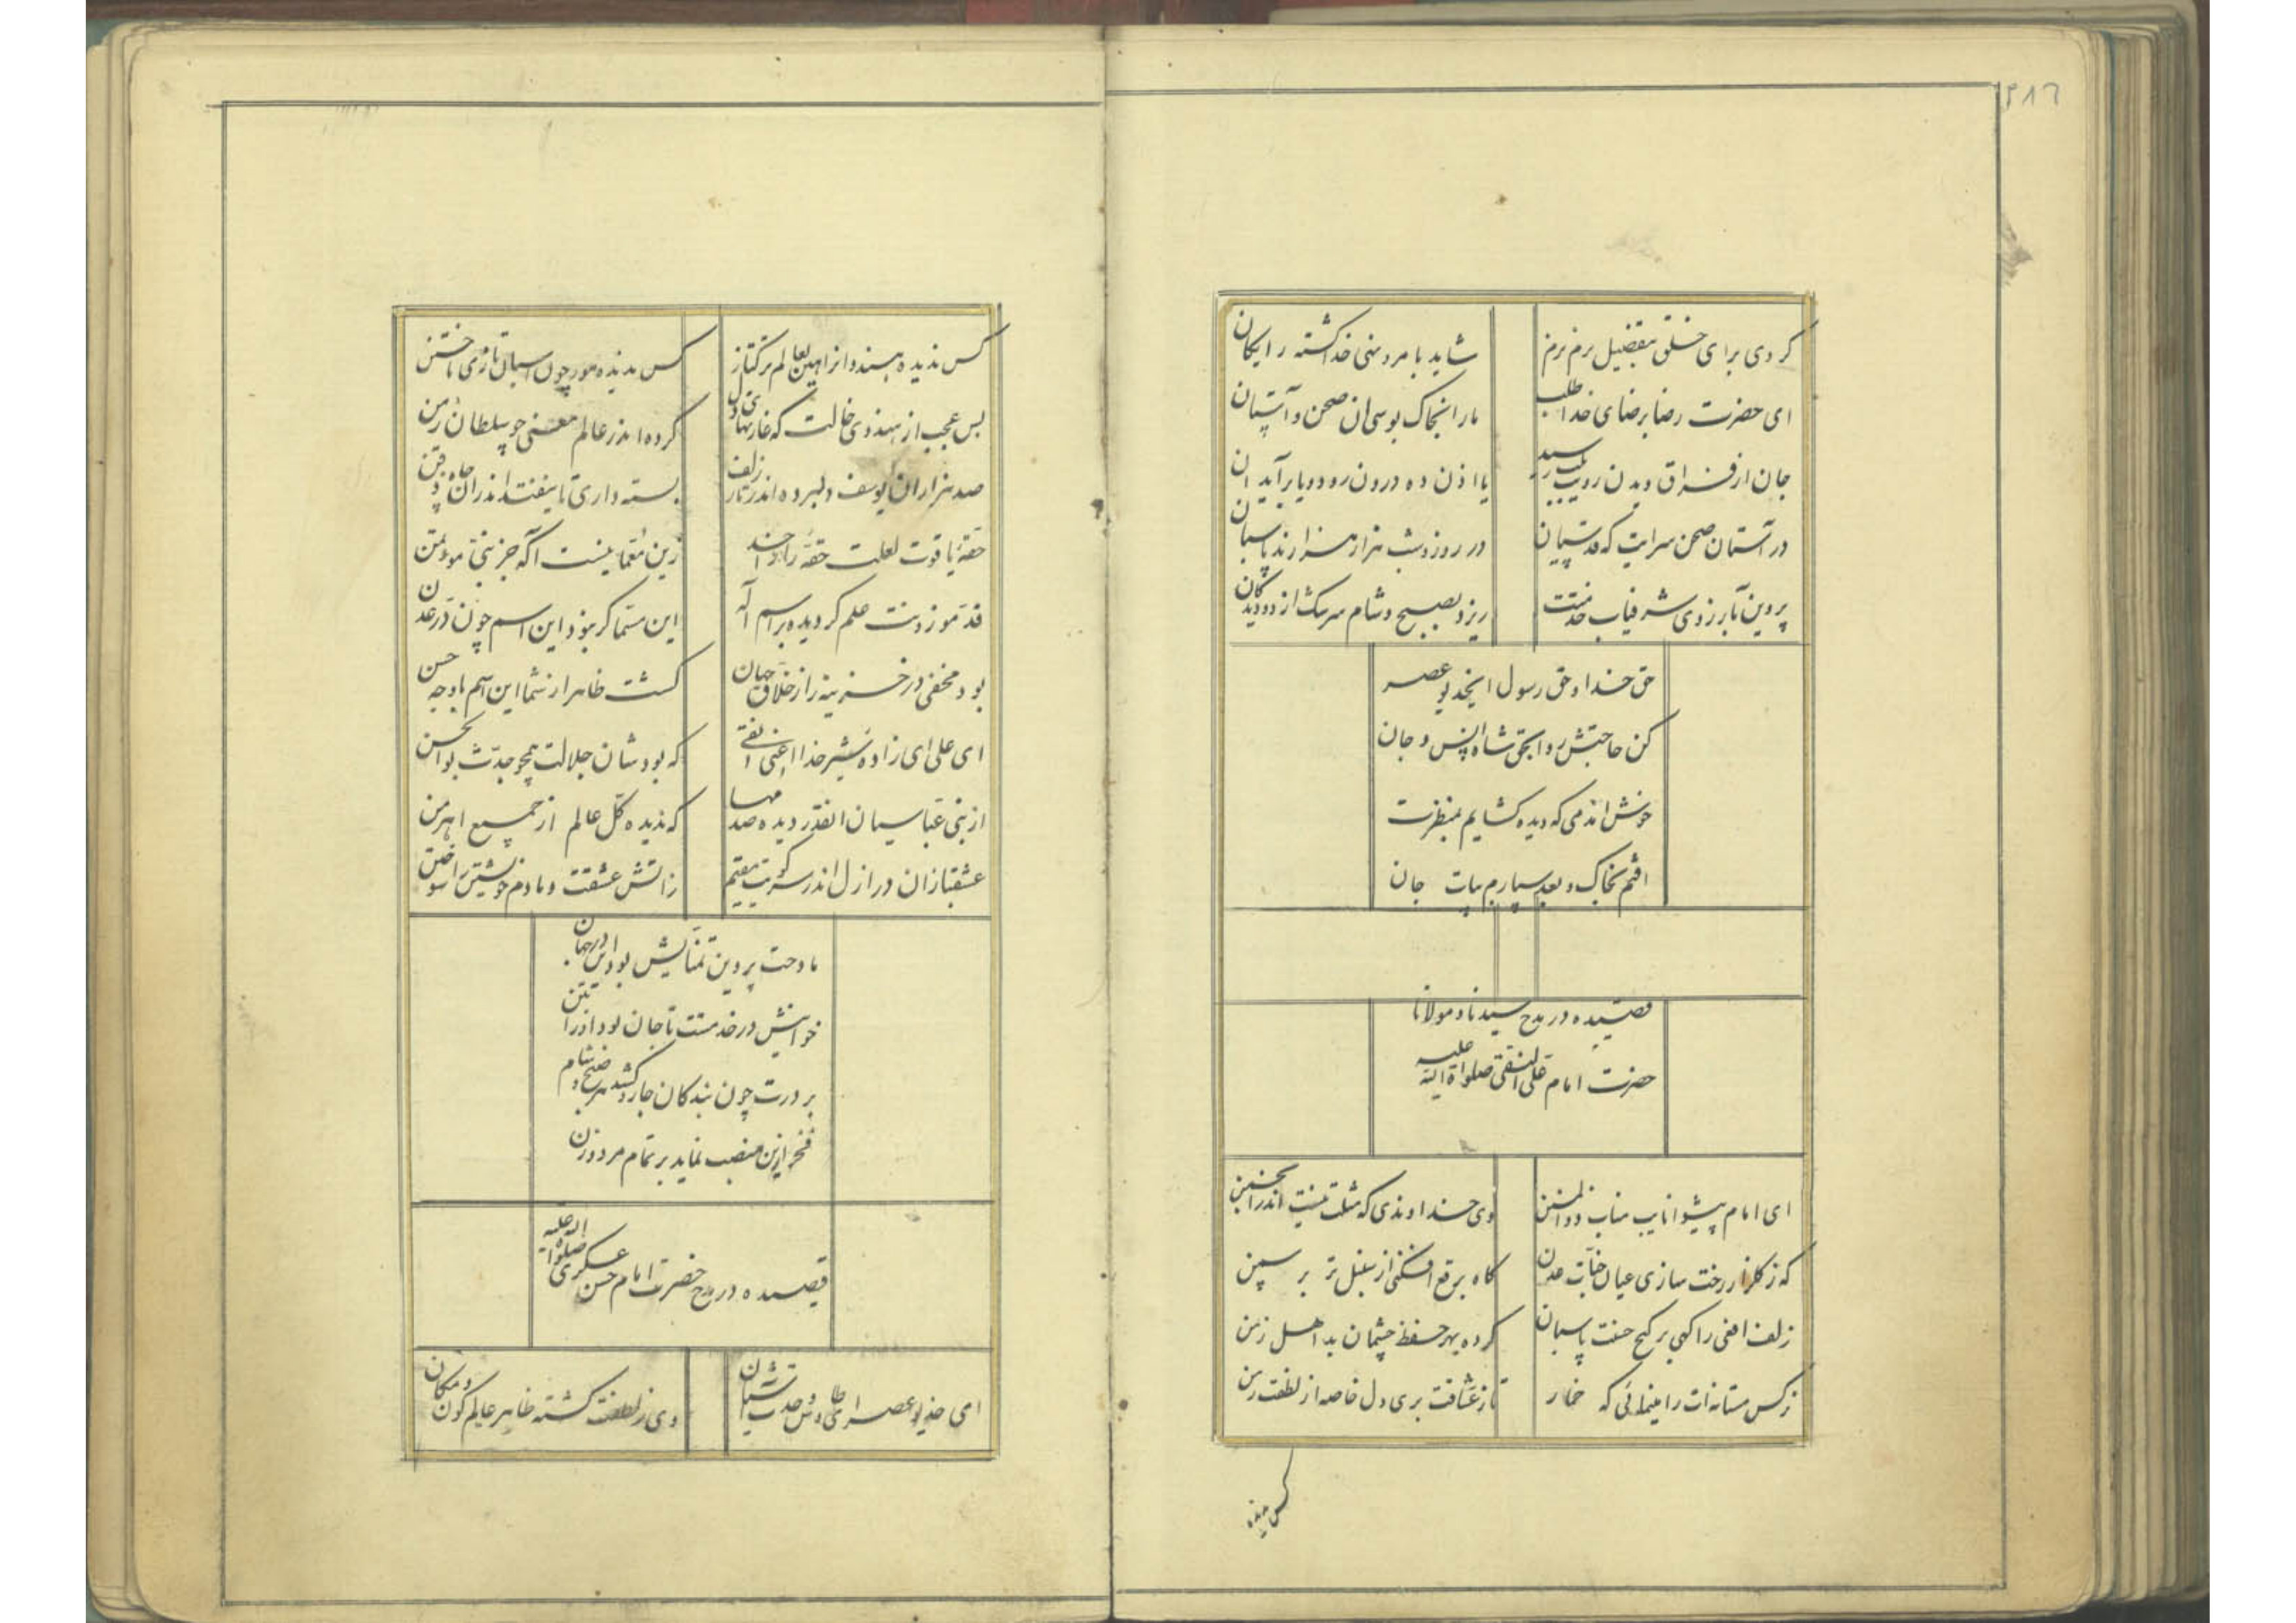 ۲۸۶
کردی برای خلق تفضیل برم برم
شاید بامر و نهی خدا گشته رایکان
ای حضرت رضا برضای خدا طلب
ما را بخاک بوسی ان صحن و آستان
جان از فراق دیدن رویت بلب رسید
یا اذن ده درون رود و یا برآید ان
در آستان صحن سرایت که قدسیان
در روز و شب هزار هزارند پاسبان
پروین بآرزوی شرفیاب خدمتت
ریزد بصبح و شام سرشک از دو دیدکان
حق خدا و حق رسول ایخدیو عصر
کن حاجتش روا بحق شاه انس و جان
خوش اندمی که دیده کشایم بمنظرت
افتم بخاک و بعد سپارم بپات جان
قصیده در مدح سیدنا و مولانا
حضرت امام علی النقی صلواة الله علیه
ای امام پیشوا نایب مناب ذوالمنن
وی خداوندی که مثلت نیست اندر انجمن
که ز کلزار رخت سازی عیان جنات عدن
کاه برقع افکنی از سنبل تر بر سمن
زلف افعی را کهی بر کنج حسنت پاسبان
کرده بهر حفظ چشمان بد اهل زمن
نرکس مستانه ات را مینمائی که خمار
تا ز عشاقت بری دل خاصه از لطفت ز من
کس ندیده
کس ندیده هندو انرا بهر عالم ترکتاز
کس ندیده مور چون اسبان تازی تاختن
بس عجب از هندوی خالت که غارتهای دل
کرده اندر عالم معنی چو سلطان زمن
صد هزاران یوسف دلبرده اندر تار زلف
بسته داری تا بیفتند اندر ان چاه ذقن
حقه یاقوت لعلت حقه راز خدا
زین معما نیست اکه جز نبی موتمن
قد موزونت علم کردیده بر اسم اله
این مسما کر نبود این اسم چون در عدن
بود مخفی در خزینه راز خلاق جهان
کشت ظاهر از شما این اسم با وجه حسن
ای علی ای زاده شیر خدا اعنی نقی
که بود شان جلالت همچو جدت بوالحسن
از بنی عباسیان انقدر دیده صد مها
که ندیده کل عالم از جمیع اهرمن
عشقبازان در ازل اندر سر کویت مقیم
ز اتش عشقت دمادم خویشتن را سوختن
مادحت پروین تمنایش بود این در جهان
خواهش در خدمتت تا جان بود اندر بتن
بر درت چون بندکان جارو کشد هر صبح و شام
فخر از این منصب نماید بر تمام مرد و زن
قصیده در مدح حضرت امام حسن عسکری صلواة الله علیه
ای خدیو عصر ای طاوس وحدت آشیان
وی ز لطفت کشته ظاهر عالم کون و مکان